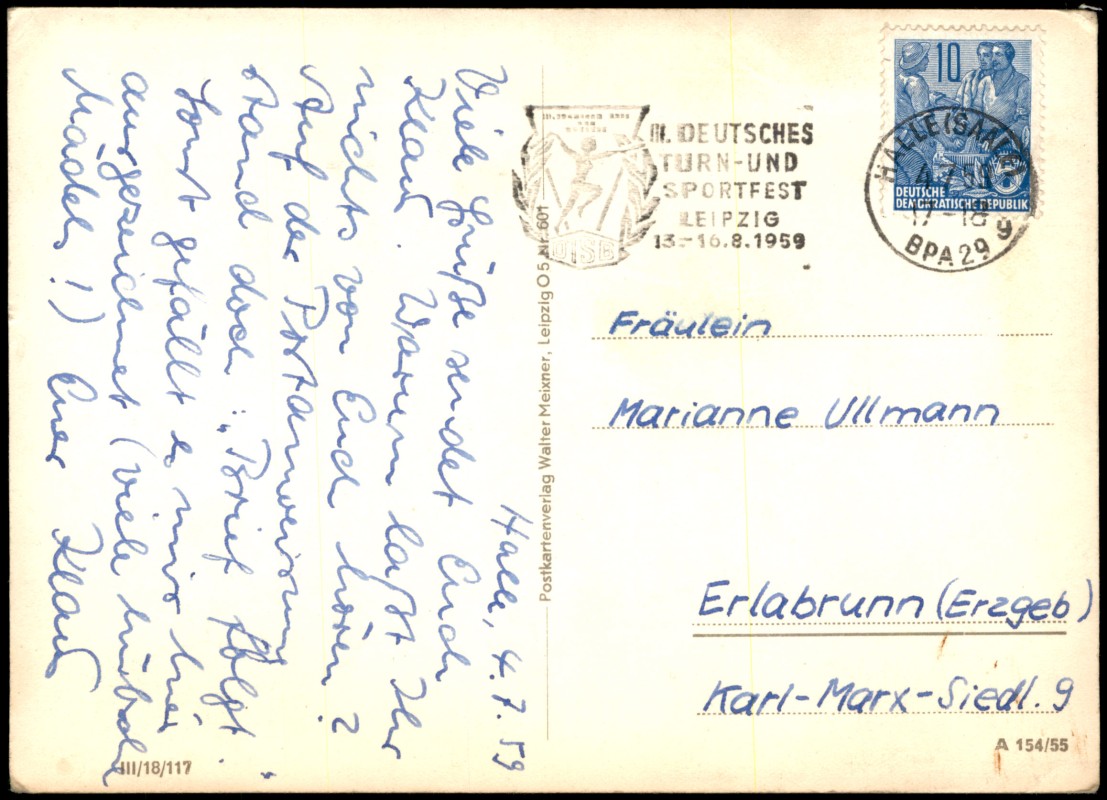 Halle, 4.7.59
Viele Grüße sendet Euch
Klaus. Warum laßt Ihr
nichts von Euch hören?
Auf der Postanweisung
stand doch „Brief folgt".
Sonst gefällt es mir hier
ausgezeichnet (viele hübsche
Mädels!) Euer Klaus
Postkartenverlag Walter Meixner, Leipzig O 5 Nr. 601
III. DEUTSCHES
TURN-UND
SPORTFEST
LEIPZIG
13.-16.8.1959
DTSB
10
DEUTSCHE
DEMOKRATISCHE REPUBLIK
HALLE (SAALE)
17-18
g
BPA 29
Fräulein
Marianne Ullmann
Erlabrunn (Erzgeb)
Karl-Marx-Siedl. 9
A 154/55
III/18/117